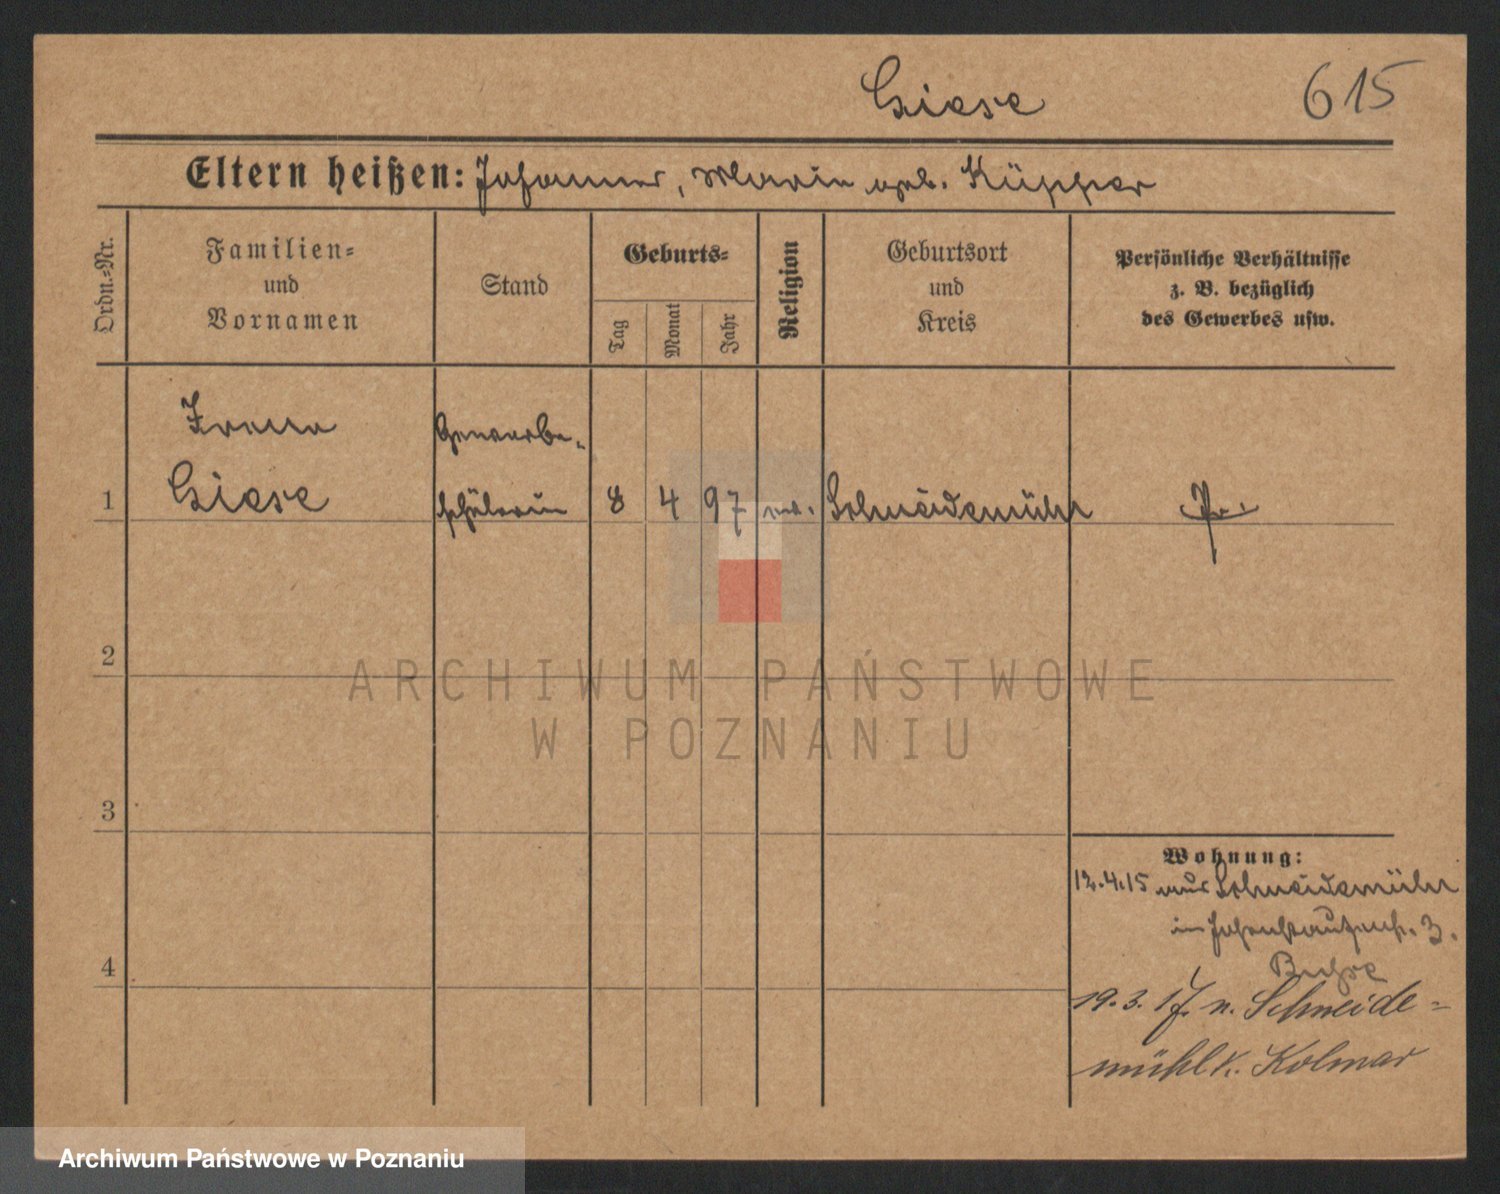 Giese 615
Eltern heißen: Johannes, Marie geb. Küpper
Ordn.-Nr.
Familien-
und
Vornamen
Stand
Geburts-
Tag
Monat
Jahr
Religion
Geburtsort
und
Kreis
Persönliche Verhältnisse
z. B. bezüglich
des Gewerbes usw.
Gewerbe-
1 Giese schülerin 8 4 97 ev. Schneidemühl Pr.
2
3
4
Wohnung:
12.4.15 aus Schneidemühl
3.
19.3.17. n. Schneide-
mühl K. Kolmar
ARCHIWUM PAŃSTWOWE
W POZNANIU
Archiwum Państwowe w Poznaniu